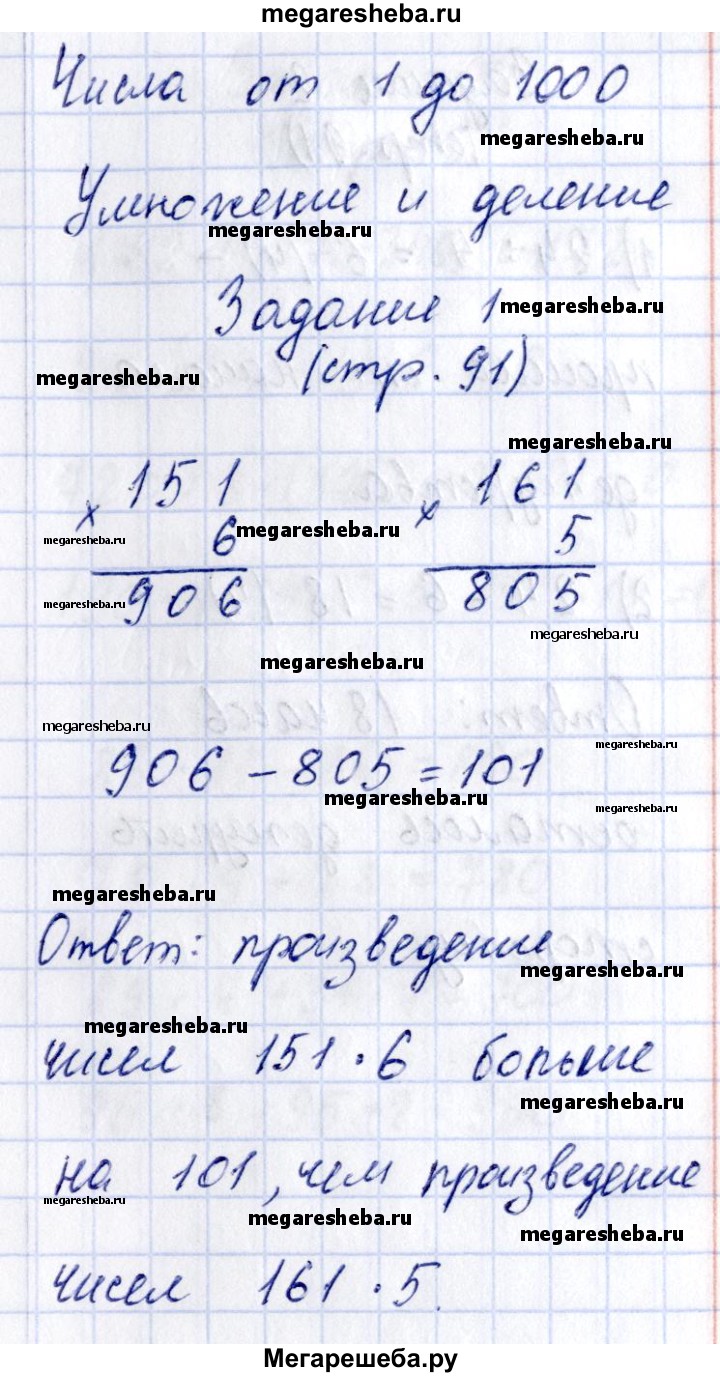 megaresheba.ru
Числа от 1 до 1000
megaresheba.ru
Умножение и деление
megaresheba.ru
Задание 1 megaresheba.ru
megaresheba.ru (стр. 91)
megaresheba.ru
× 151 × 161
megaresheba.ru 6 megaresheba.ru 5
megaresheba.ru 906 805
megaresheba.ru
megaresheba.ru
megaresheba.ru
megaresheba.ru
906 - 805 = 101
megaresheba.ru
megaresheba.ru
megaresheba.ru
Ответ: произведение
megaresheba.ru
megaresheba.ru
чисел 151 · 6 больше
megaresheba.ru
на 101, чем произведение
megaresheba.ru
megaresheba.ru
megaresheba.ru
чисел 161 · 5.
Мегарешеба.ру